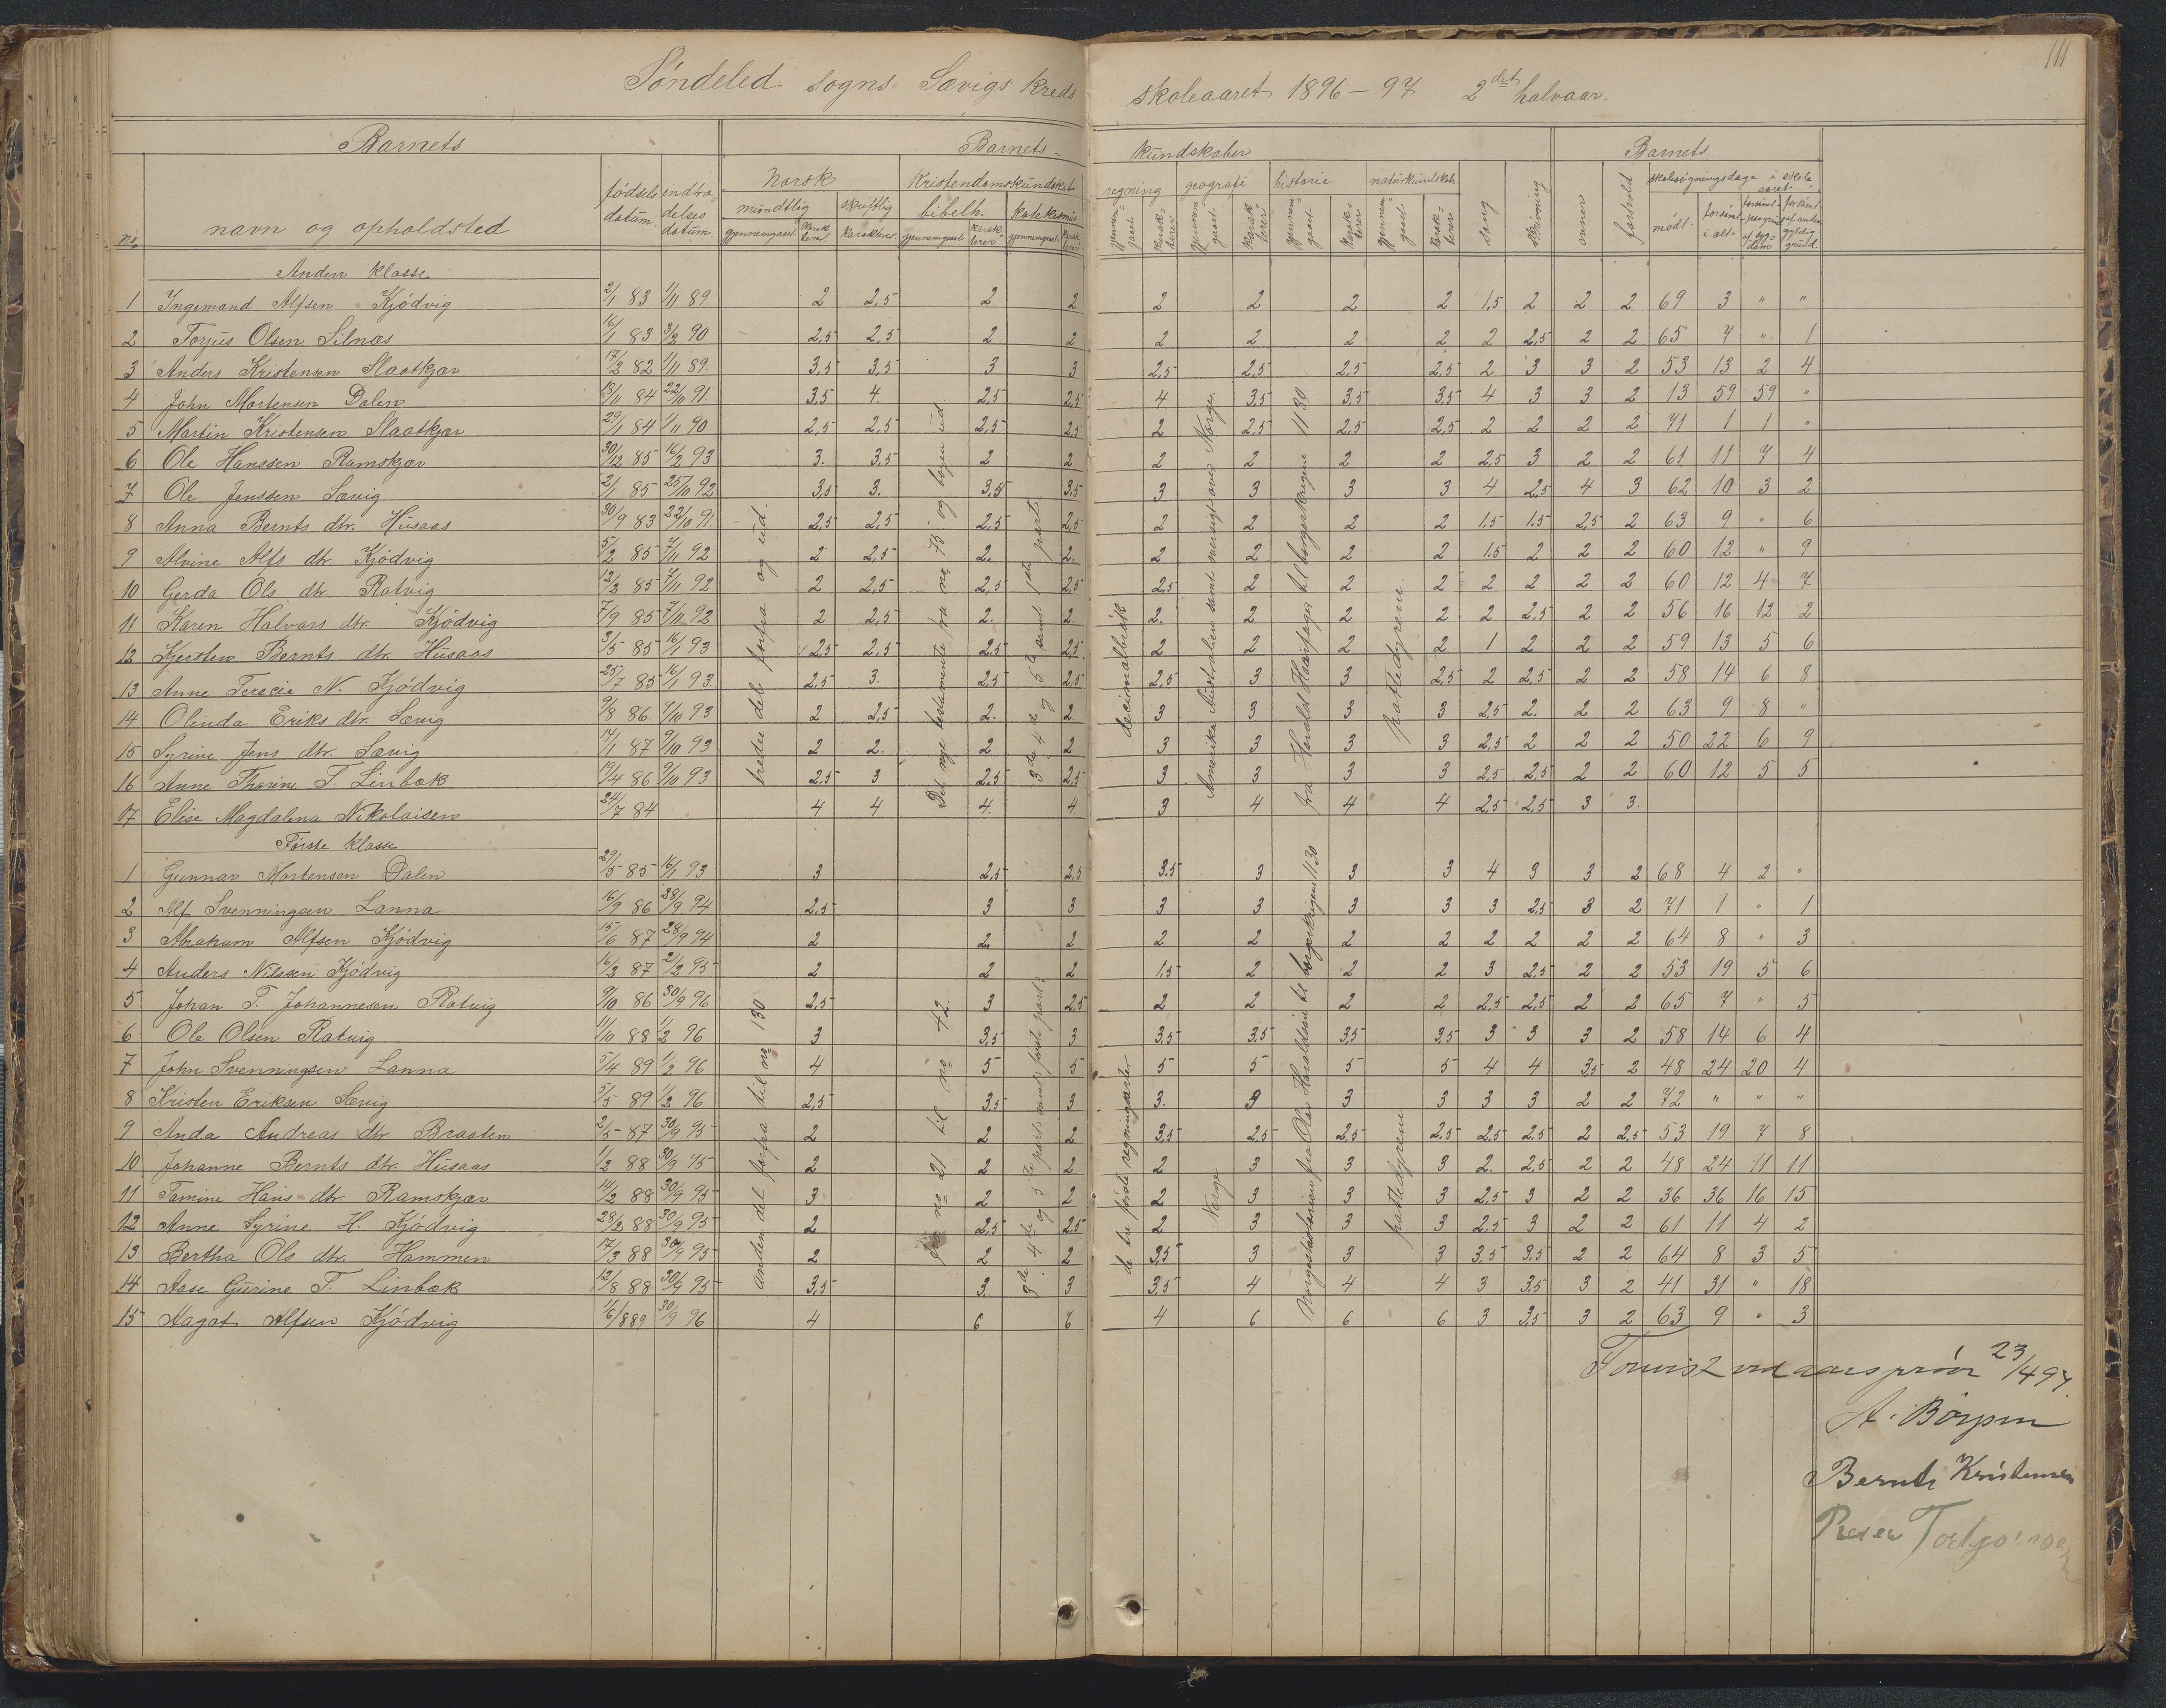 111
Söndeled sogns. Sævigs Kreds skoleaaret 1896-97 2det halvaar.
Barnets Barnets- Kundskaber Barnets
Norsk Kristendomskundskab regning geografi historie naturkundskab. sang skrivning evner forhold skolesögningsdage i skoleaaret
mundtlig skriftlig bibelh. Katekismus
no navn og opholdsted födselsdatum indtrædelsesdatum gjennemgaaet Karakterer Karakterer gjennemgaaet Karakterer gjennemgaaet Karakterer gjennemgaaet Karakterer gjennemgaaet Karakterer gjennemgaaet Karakterer gjennemgaaet Karakterer mödt forsömt i alt forsömt paagrund af sygdom forsömt af anden gyldig grund
Anden Klasse
1 Ingemand Alfsen Kjödvig 2/1 83 1/11 89 2 2,5 2 2 2 2 2 2 1,5 2 2 2 69 3 " "
2 Torjus Olsen Silnæs 16/1 83 3/2 90 2,5 2,5 2 2 2 2 2 2 2 2,5 2 2 65 7 " 1
3 Anders Kristensen Slaatkjær 17/2 82 1/11 89. 3,5 3,5 3 3 2,5 2,5 2,5 2,5 2 3 3 2 53 13 2 4
4 John Mortensen Dalen 18/11 84 22/10 91. 3,5 4. 2,5 2,5 4 3,5 3,5 3,5 4 3 3 2 13 59 59 "
5 Martin Kristensen Slaatkjær 29/1 84 1/11 90 2,5 2,5 2,5 2,5 2 2,5 2,5 2,5 2 2 2 2 71 1 1 "
6 Ole Hanssen Ramskjær 30/12 85 16/2 93 3. 3,5 2 2 2 2 2 2 2,5 3 2 2 61 11 7 4
7 Ole Jenssen Sævig 2/1 85 25/10 92 3,5 3. 3,5 3,5 3 3 3 3 4 2,5 4 3 62 10 3 2
8 Anna Bernts dtr. Husaas 30/9 83 22/10 91. 2,5 2,5 2,5 2,5 2 2 2 2 1,5 1,5 2,5 2 63 9 " 6
9 Alvine Alfs dtr Kjödvig 5/2 85 7/11 92 2 2,5 2. 2. 2 2 2 2 1,5 2 2 2 60 12 " 9
10 Gerda Ols dtr. Rotvig 12/2 85 7/11 92 2 2,5 2,5 2,5 2,5 2 2 2 2 2 2 2 60 12 4 7
11 Karen Halvors dtr. Kjödvig 7/9 85 7/11 92 2 2,5 2. 2. 2. 2 2 2 2 2,5 2 2 56 16 12 2
12 Kjersten Bernts dtr. Husaas 3/5 85 16/1 93 2,5 2,5 2,5 2,5 2 2 2 2 1 2 2 2 59 13 5 6
13 Anne Terecie N. Kjödvig 25/7 85 16/1 93. 2,5 3. 2,5 2,5 2,5 3 3 2,5 2 2,5 2 2 58 14 6 8
14 Olinda Eriks dtr. Sævig 9/8 86. 9/10 93 2 2,5 2. 2. 3 3 3 3 2,5 2. 2 2 63 9 8 "
15 Syrine Jens dtr. Sævig 14/1 87 9/10 93 2 2. 2 2 3 3 3 3 2,5 2 2 2 50 22 6 9
16 Anne Thorine T. Linbæk 19/4 86 9/10 93 2,5 3 2,5 2,5 3 3 3 3 2,5 2,5 2 2 60 12 5 5
17 Elise Magdalena Nikolaisen 24/7 84 4 4 4. 4. 3 4 4 4 2,5 2,5 3 3.
tredie del forfra og ud.
Det nye testamente fra no 75 og bogen ud.
3de 4de og 5te samt 1ste part
decimalbrök
Amerika Australien samt oversigt over Norge.
fra Harald Haarfager til borgerkrigene 1130
pattedyrene.
Förste Klasse
1 Gunnar Mortensen Dalen 29/5 85 16/1 93 3 2,5 2,5 3,5 3 3 3 4 3 3 2 68 4 2 "
2 Alf Svenningsen Lanna 16/9 86 28/9 94 2,5 3 3 3 3 3 3 3 2,5 3 2 71 1 " 1
3 Abraham Alfsen Kjödvig 15/6 87 28/9 94 2 2 2 2 2 2 2 2 2 2 2 64 8 " 3
4 Anders Nilssen Kjödvig 16/3 87 2/2 95 2 2 2 1,5 2 2 2 3 2,5 2 2 53 19 5 6
5 Johan T. Johannesen Rotvig 9/10 86 30/9 96 2,5 3 2,5 2 2 2 2 2,5 2,5 2 2 65 7 " 5
6 Ole Olsen Rotvig 11/10 88 1/2 96 3 3,5 3 3,5 3,5 3,5 3,5 3 3 3 2 58 14 6 4
7 John Svenningsen Lanna 5/4 89 1/2 96 4 5 5 5 5 5 5 4 4 3,5 2 48 24 20 4
8 Kristen Eriksen Sævig 5/5 89 1/2 96 2,5 3,5 3 3. 3 3 3 3 3 2 2 72 " " "
9 Anda Andreas dtr Braaten 2/5 87 30/9 95 2 2 2 3,5 2,5 2,5 2,5 2,5 2,5 2 2,5 53 19 7 8
10 Johanne Bernts dtr. Husaas 1/2 88 30/9 95 2 2 2 2 3 3 3 2. 2,5 2 2 48 24 11 11
11 Tomine Hans dtr. Ramskjær 14/2 88 30/9 95 3 2 2 2 3 3 3 2,5 3 2 2 36 36 16 15
12 Anne Syrine H. Kjödvig 28/2 88 30/9 95 2 2,5 2,5 2 3 3 3 2,5 3 2 2 61 11 4 2
13 Bertha Ols dtr. Hammen 17/3 88 30/9 95 2 2 2 3,5 3 3 3 3,5 3,5 2 2 64 8 3 5
14 Aase Gurine T. Linbæk 12/8 88 30/9 95 3,5 3 3 3,5 4 4 4 3 3,5 3 2 41 31 " 18
15 Aagot Alfsen Kjödvig 11/6 1889 30/9 96 4 6 6 4 6 6 6 3 3,5 3 2 63 9 " 3
anden del forfra til no 130
fra no 21 til no 42.
3de 4de og 5te part samt förste part
de tre förste regningsarter
Norge
Norgeshistorien fra Olav Haraldsön til borgerkrigene 1130
pattedyrene
Forevist ved aarspröven 23/4 97.
A. Börresen
Bernt Kristensen